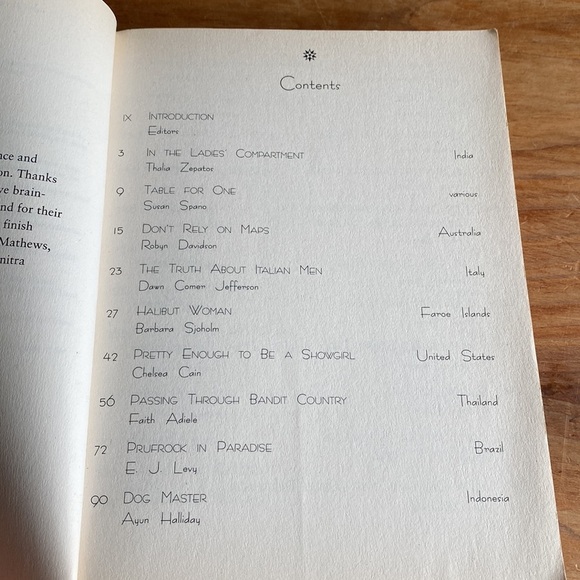 nce and
on. Thanks
ve brain-
nd for their
finish
Mathews,
mitra
Contents
IX INTRODUCTION
Editors
3 IN THE LADIES' COMPARTMENT India
Thalia Zepatos
9 TABLE FOR ONE various
Susan Spano
15 DON'T RELY ON MAPS Australia
Robyn Davidson
23 THE TRUTH ABOUT ITALIAN MEN Italy
Dawn Comer Jefferson
27 HALIBUT WOMAN Faroe Islands
Barbara Sjoholm
42 PRETTY ENOUGH TO BE A SHOWGIRL United States
Chelsea Cain
56 PASSING THROUGH BANDIT COUNTRY Thailand
Faith Adiele
72 PRUFROCK IN PARADISE Brazil
E. J. Levy
90 DOG MASTER Indonesia
Ayun Halliday